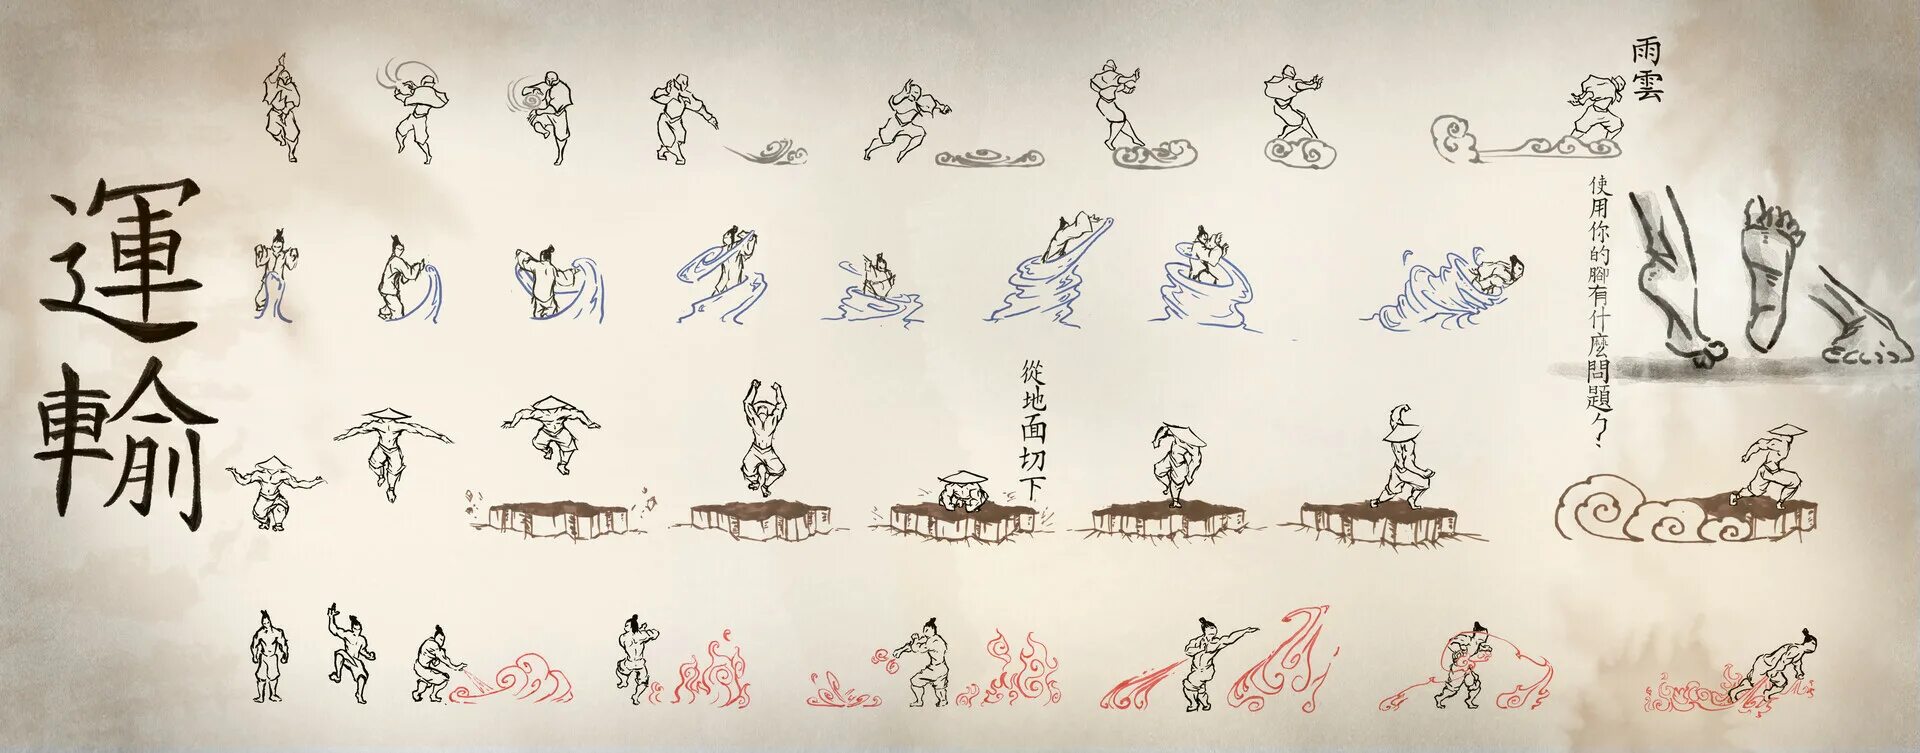 運輸
雨雲
使用你的腳有什麼問題
從地面切下